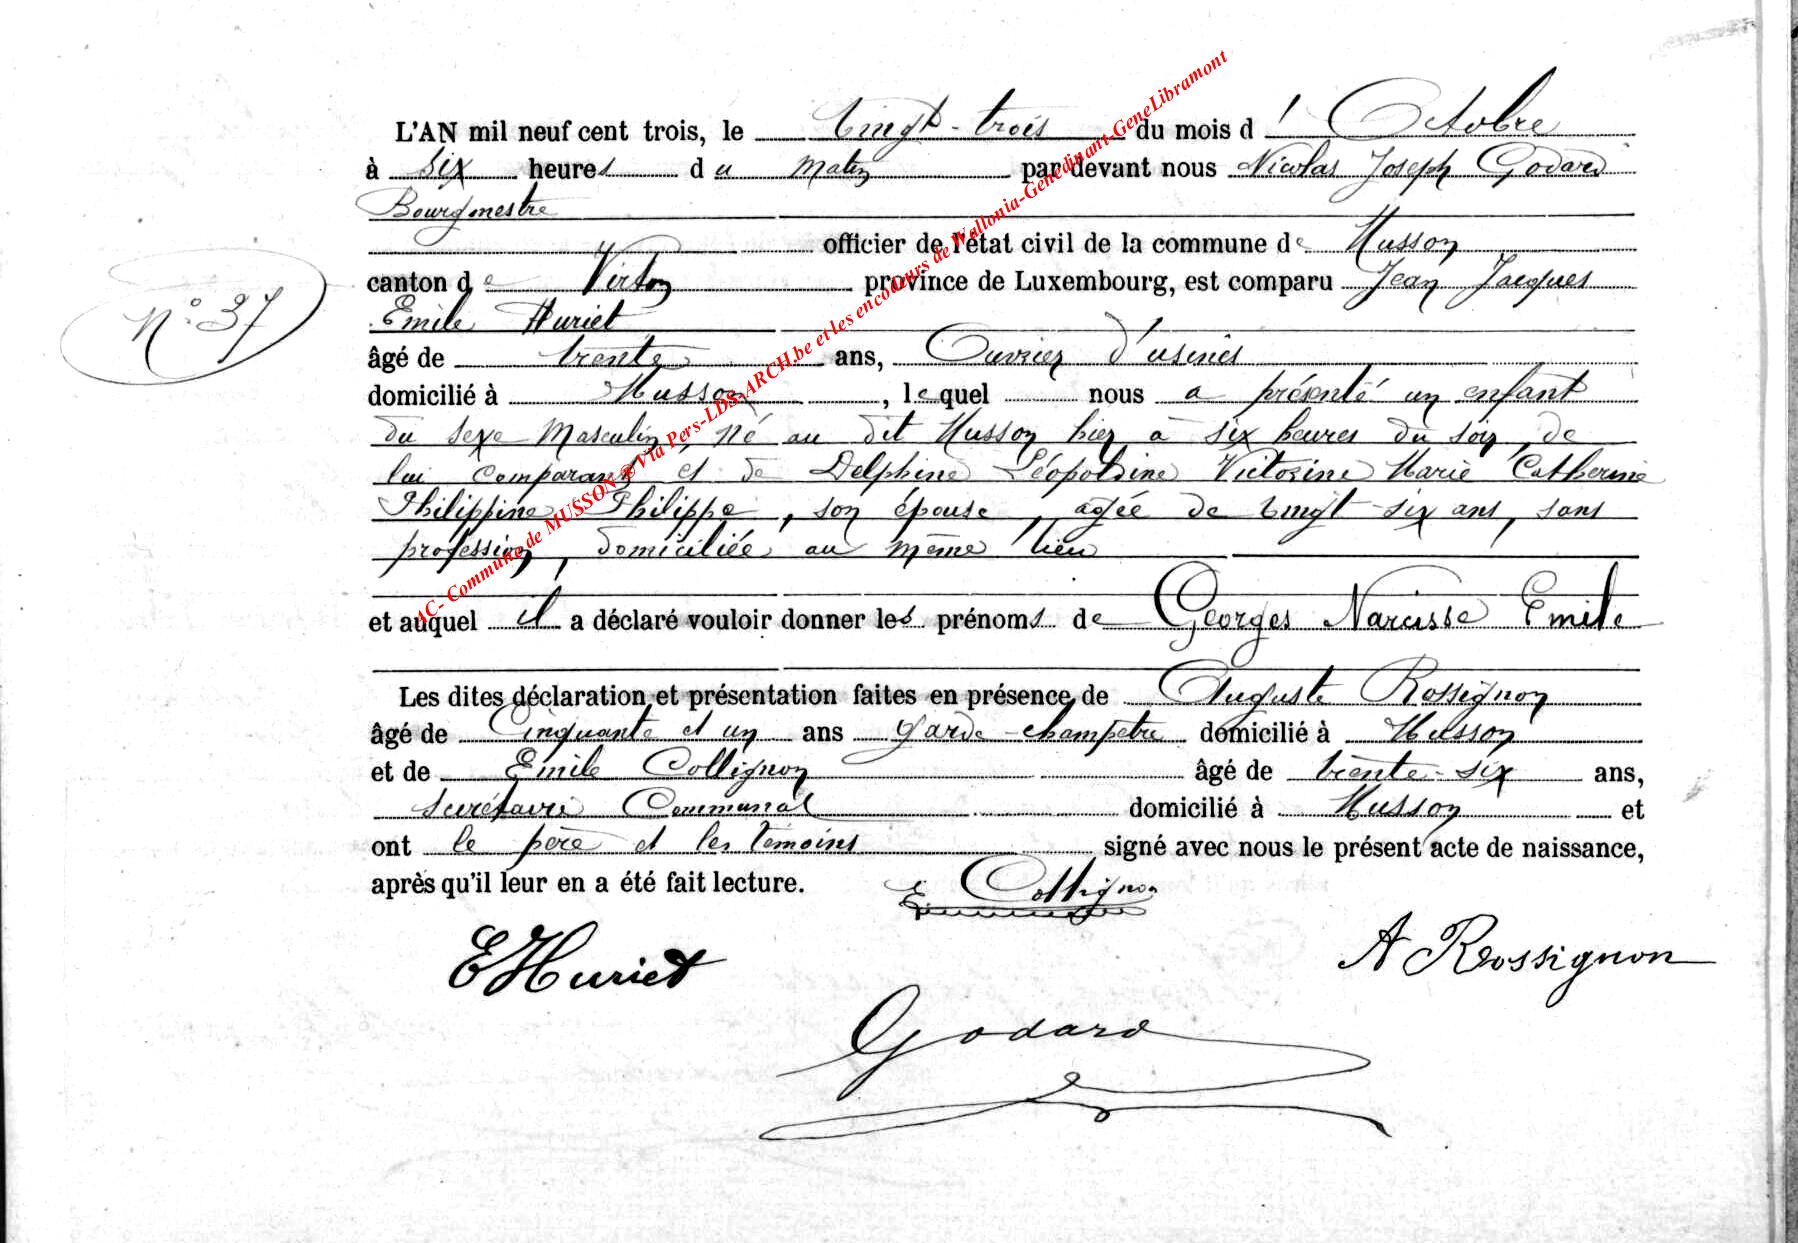 L'AN mil neuf cent trois, le Vingt-trois du mois d' Octobre
à six heures du matin par devant nous Nicolas Joseph Godard
Bourgmestre
officier de l'état civil de la commune de Musson
canton de Virton province de Luxembourg, est comparu Jean Jacques
N° 37
Emile Huriet
âgé de trente ans, Ouvrier d'usines
domicilié à Musson, lequel nous a présenté un enfant
du sexe Masculin, né au dit Musson hier à six heures du soir, de
lui comparant et de Delphine Léopoldine Victorine Marie Catherine
Philippine Philippe, son épouse, agée de vingt-six ans, sans
profession, domiciliée au même lieu
et auquel il a déclaré vouloir donner les prénoms de Georges Narcisse Emile
Les dites déclaration et présentation faites en présence de Auguste Rossignon
âgé de Cinquante et un ans garde-champêtre domicilié à Musson
et de Emile Collignon âgé de trente-six ans,
secrétaire Communal domicilié à Musson et
ont le père et les témoins signé avec nous le présent acte de naissance,
après qu'il leur en a été fait lecture.
E Collignon
EHuriet
A Rossignon
Godard
AC- Commune de MUSSON ® Via Pers-LDS-ARCH.be et les encodeurs de Wallonia-Genedinant-GeneLibramont